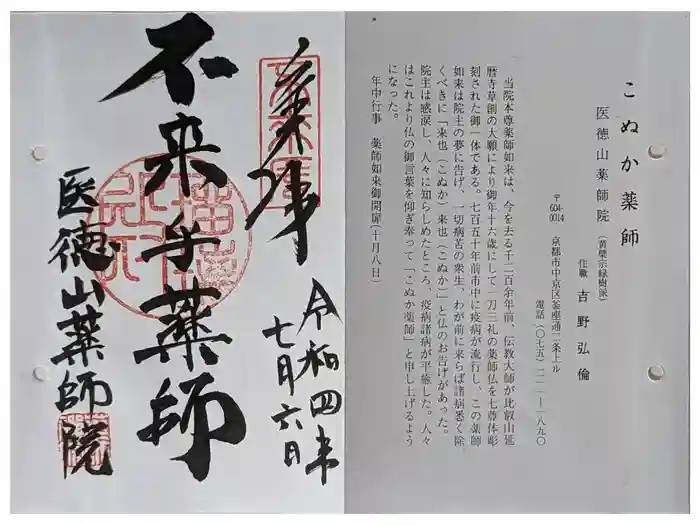 奉拝
令和四年
七月六日
不来乎薬師
医徳山薬師院
こぬか薬師
医徳山薬師院（黄檗宗緑樹派）
住職 吉野弘倫
〒604-0014 京都市中京区釜座通二条上ル
電話（〇七五）二一一-一八九〇
当院本尊薬師如来は、今を去る千二百余年前、伝教大師が比叡山延
暦寺草創の大願により御年十六歳にして一刀三礼の薬師仏を七尊体彫
刻された御一体である。七百五十年前市中に疫病が流行し、この薬師
如来は院主の夢に告げ、一切病苦の衆生、わが前に来らば諸病悉く除
くべきに「来也（こぬか）来也（こぬか）」と仏のお告げがあった。
院主は感涙し、人々に知らしめたところ、疫病諸病が平癒した。人々
はこれより仏の御言葉を仰ぎ奉って「こぬか薬師」と申し上げるよう
になった。
年中行事 薬師如来御開扉（十月八日）